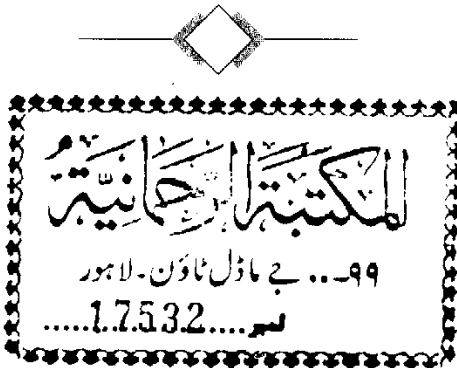 المكتبة الرحمانية
۹۹۔۔۔ جے ماڈل ٹاؤن۔لاہور
نمبر....17532.....